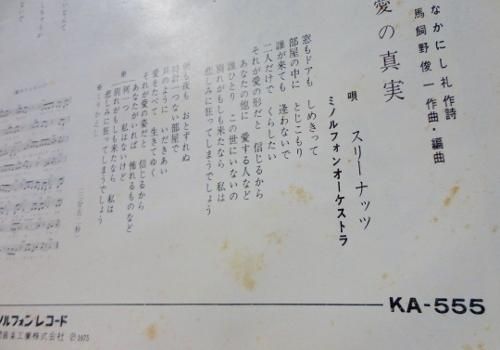 なかにし礼 作詩
馬飼野俊一 作曲・編曲
愛の真実
唄 スリーナッツ
ミノルフォンオーケストラ
窓もドアも しめきって
部屋の中に とじこもり
誰が来ても 逢わないで
二人だけで くらしたい
それが愛の形だと 信じるから
あなたの他に 愛する人など
誰ひとり この世にいないの
別れがもしも来たなら 私は
悲しみに狂ってしまうでしょう
朝も夜も おとずれぬ
時計一つない部屋で
貝のように いだきあい
愛をたべて 生きてゆく
それが愛の姿だと 信じるから
あなたがあれば 怖れるものなど
何一つ 私はないけど
別れがもしも来たなら 私は
悲しみに狂ってしまうでしょう
KA-555
ノルフォンレコード
音楽工業株式会社 ℗1975